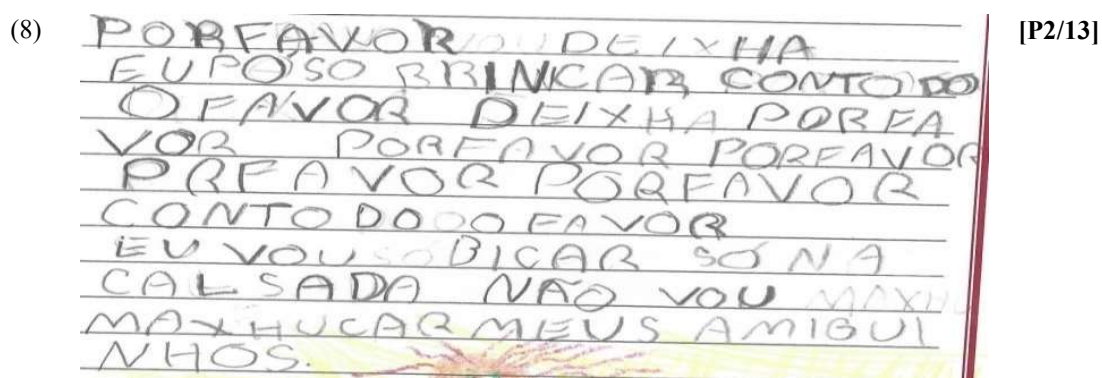 (8) [P2/13]
PORFAVOR DEIXHA
EU POSO BRINCAR CONTODO
O FAVOR DEIXHA PORFA
VOR PORFAVOR PORFAVOR
PRFAVOR PORFAVOR
CONTODO O FAVOR
EU VOU BICAR SÓ NA
CALSADA NÃO VOU
MAXHUCAR MEUS AMIGUI
NHOS.